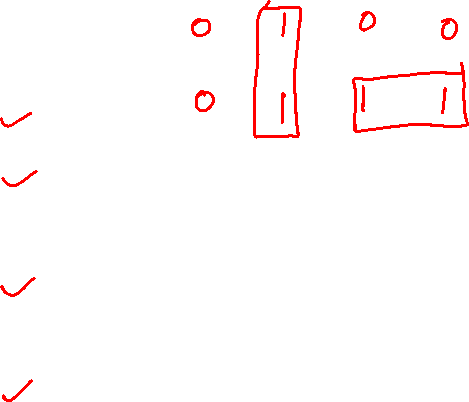 0 1 0 0
0 1 1 1
✓
✓
✓
✓